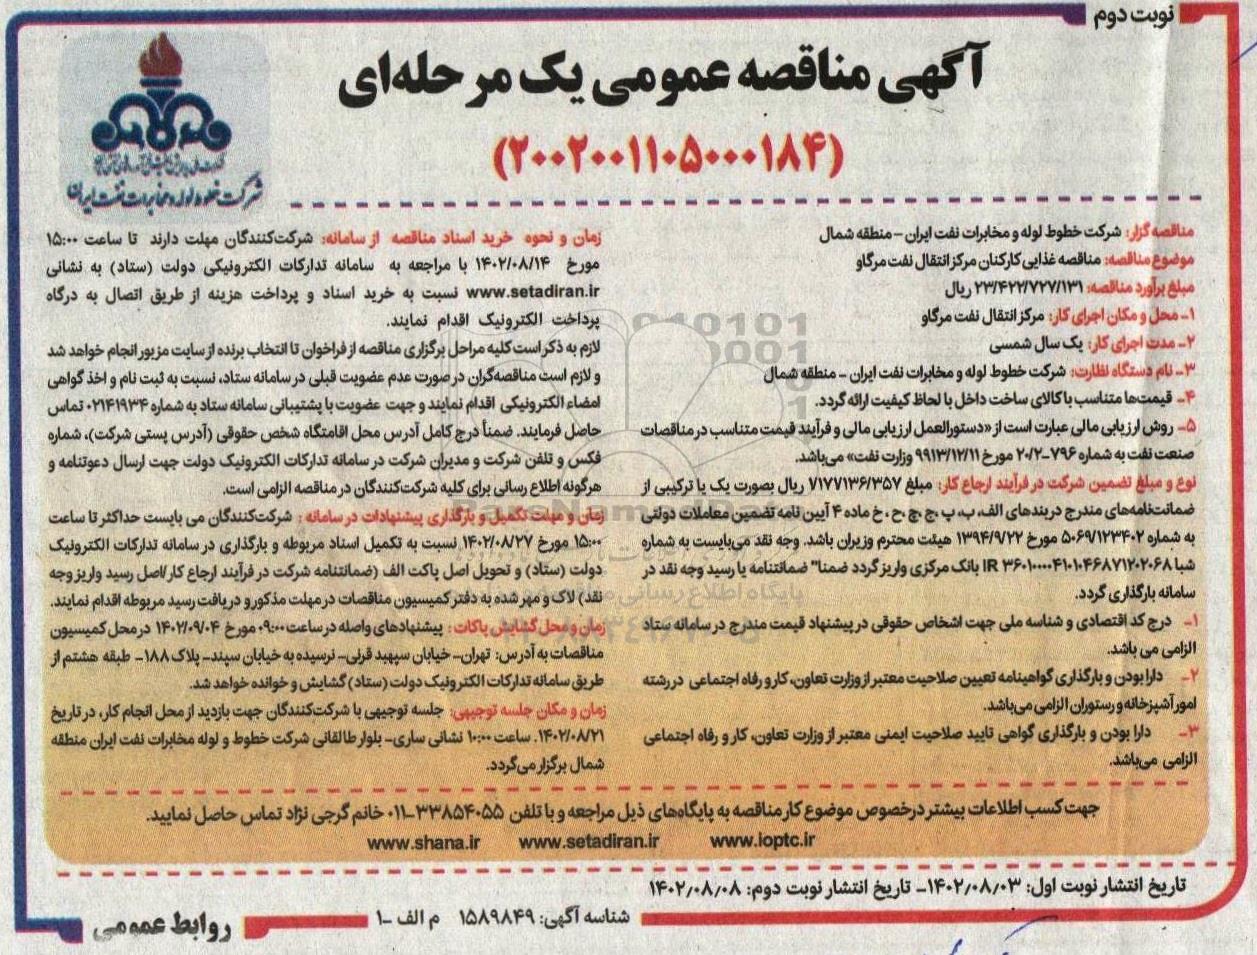 نوبت دوم
آگهی مناقصه عمومی یک مرحله‌ای
(۲۰۰۲۰۰۱۱۰۵۰۰۰۱۸۴)
شرکت خطوط لوله و مخابرات نفت ایران
مناقصه گزار: شرکت خطوط لوله و مخابرات نفت ایران – منطقه شمال
موضوع مناقصه: مناقصه غذایی کارکنان مرکز انتقال نفت مرگاو
مبلغ برآورد مناقصه: ۲۳/۴۲۲/۷۲۷/۱۳۱ ریال
۱- محل و مکان اجرای کار: مرکز انتقال نفت مرگاو
۲- مدت اجرای کار: یک سال شمسی
۳- نام دستگاه نظارت: شرکت خطوط لوله و مخابرات نفت ایران – منطقه شمال
۴- قیمت‌ها متناسب با کالای ساخت داخل با لحاظ کیفیت ارائه گردد.
۵- روش ارزیابی مالی عبارت است از «دستورالعمل ارزیابی مالی و فرآیند قیمت متناسب در مناقصات
صنعت نفت به شماره ۷۹۶-۲۰/۲ مورخ ۹۹۱۳/۱۲/۱۱ وزارت نفت» می‌باشد.
نوع و مبلغ تضمین شرکت در فرآیند ارجاع کار: مبلغ ۷/۱۷۷/۱۳۶/۳۵۷ ریال بصورت یک یا ترکیبی از
ضمانت‌نامه‌های مندرج در بندهای الف، ب، پ، ج، چ، ح، خ ماده ۴ آیین نامه تضمین معاملات دولتی
به شماره ۵۰۶۹/۱۲۳۴۰۲ مورخ ۱۳۹۴/۹/۲۲ هیئت محترم وزیران باشد. وجه نقد می‌بایست به شماره
شبا IR ۳۶۰۱۰۰۰۰۴۱۰۱۰۴۶۸۷۱۲۰۲۰۶۸ بانک مرکزی واریز گردد ضمنا" ضمانتنامه یا رسید وجه نقد در
سامانه بارگذاری گردد.
۱- درج کد اقتصادی و شناسه ملی جهت اشخاص حقوقی در پیشنهاد قیمت مندرج در سامانه ستاد
الزامی می باشد.
۲- دارا بودن و بارگذاری گواهینامه تعیین صلاحیت معتبر از وزارت تعاون، کار و رفاه اجتماعی در رشته
امور آشپزخانه و رستوران الزامی می‌باشد.
۳- دارا بودن و بارگذاری گواهی تایید صلاحیت ایمنی معتبر از وزارت تعاون، کار و رفاه اجتماعی
الزامی می‌باشد.
زمان و نحوه خرید اسناد مناقصه از سامانه: شرکت‌کنندگان مهلت دارند تا ساعت ۱۵:۰۰
مورخ ۱۴۰۲/۰۸/۱۴ با مراجعه به سامانه تدارکات الکترونیکی دولت (ستاد) به نشانی
www.setadiran.ir نسبت به خرید اسناد و پرداخت هزینه از طریق اتصال به درگاه
پرداخت الکترونیک اقدام نمایند.
لازم به ذکر است کلیه مراحل برگزاری مناقصه از فراخوان تا انتخاب برنده از سایت مزبور انجام خواهد شد
و لازم است مناقصه‌گران در صورت عدم عضویت قبلی در سامانه ستاد، نسبت به ثبت نام و اخذ گواهی
امضاء الکترونیکی اقدام نمایند و جهت عضویت با پشتیبانی سامانه ستاد به شماره ۰۲۱۴۱۹۳۴ تماس
حاصل فرمایند. ضمناً درج کامل آدرس محل اقامتگاه شخص حقوقی (آدرس پستی شرکت)، شماره
فکس و تلفن شرکت و مدیران شرکت در سامانه تدارکات الکترونیک دولت جهت ارسال دعوتنامه و
هرگونه اطلاع رسانی برای کلیه شرکت‌کنندگان در مناقصه الزامی است.
زمان و مهلت تکمیل و بارگذاری پیشنهادات در سامانه: شرکت‌کنندگان می بایست حداکثر تا ساعت
۱۵:۰۰ مورخ ۱۴۰۲/۰۸/۲۷ نسبت به تکمیل اسناد مربوطه و بارگذاری در سامانه تدارکات الکترونیک
دولت (ستاد) و تحویل اصل پاکت الف (ضمانتنامه شرکت در فرآیند ارجاع کار/اصل رسید واریز وجه
نقد) لاک و مهر شده به دفتر کمیسیون مناقصات در مهلت مذکور و دریافت رسید مربوطه اقدام نمایند.
زمان و محل گشایش پاکات: پیشنهادهای واصله در ساعت ۰۹:۰۰ مورخ ۱۴۰۲/۰۹/۰۴ در محل کمیسیون
مناقصات به آدرس: تهران- خیابان سپهبد قرنی- نرسیده به خیابان سپند- پلاک ۱۸۸- طبقه هشتم از
طریق سامانه تدارکات الکترونیک دولت (ستاد) گشایش و خوانده خواهد شد.
زمان و مکان جلسه توجیهی: جلسه توجیهی با شرکت‌کنندگان جهت بازدید از محل انجام کار، در تاریخ
۱۴۰۲/۰۸/۲۱. ساعت ۱۰:۰۰ نشانی ساری- بلوار طالقانی شرکت خطوط و لوله مخابرات نفت ایران منطقه
شمال برگزار می‌گردد.
جهت کسب اطلاعات بیشتر درخصوص موضوع کار مناقصه به پایگاه‌های ذیل مراجعه و با تلفن ۳۳۸۵۴۰۵۵-۰۱۱ خانم گرجی نژاد تماس حاصل نمایید.
www.shana.ir www.setadiran.ir www.ioptc.ir
تاریخ انتشار نوبت اول: ۱۴۰۲/۰۸/۰۳- تاریخ انتشار نوبت دوم: ۱۴۰۲/۰۸/۰۸
شناسه آگهی: ۱۵۸۹۸۴۹ م الف -۱
روابط عمومی